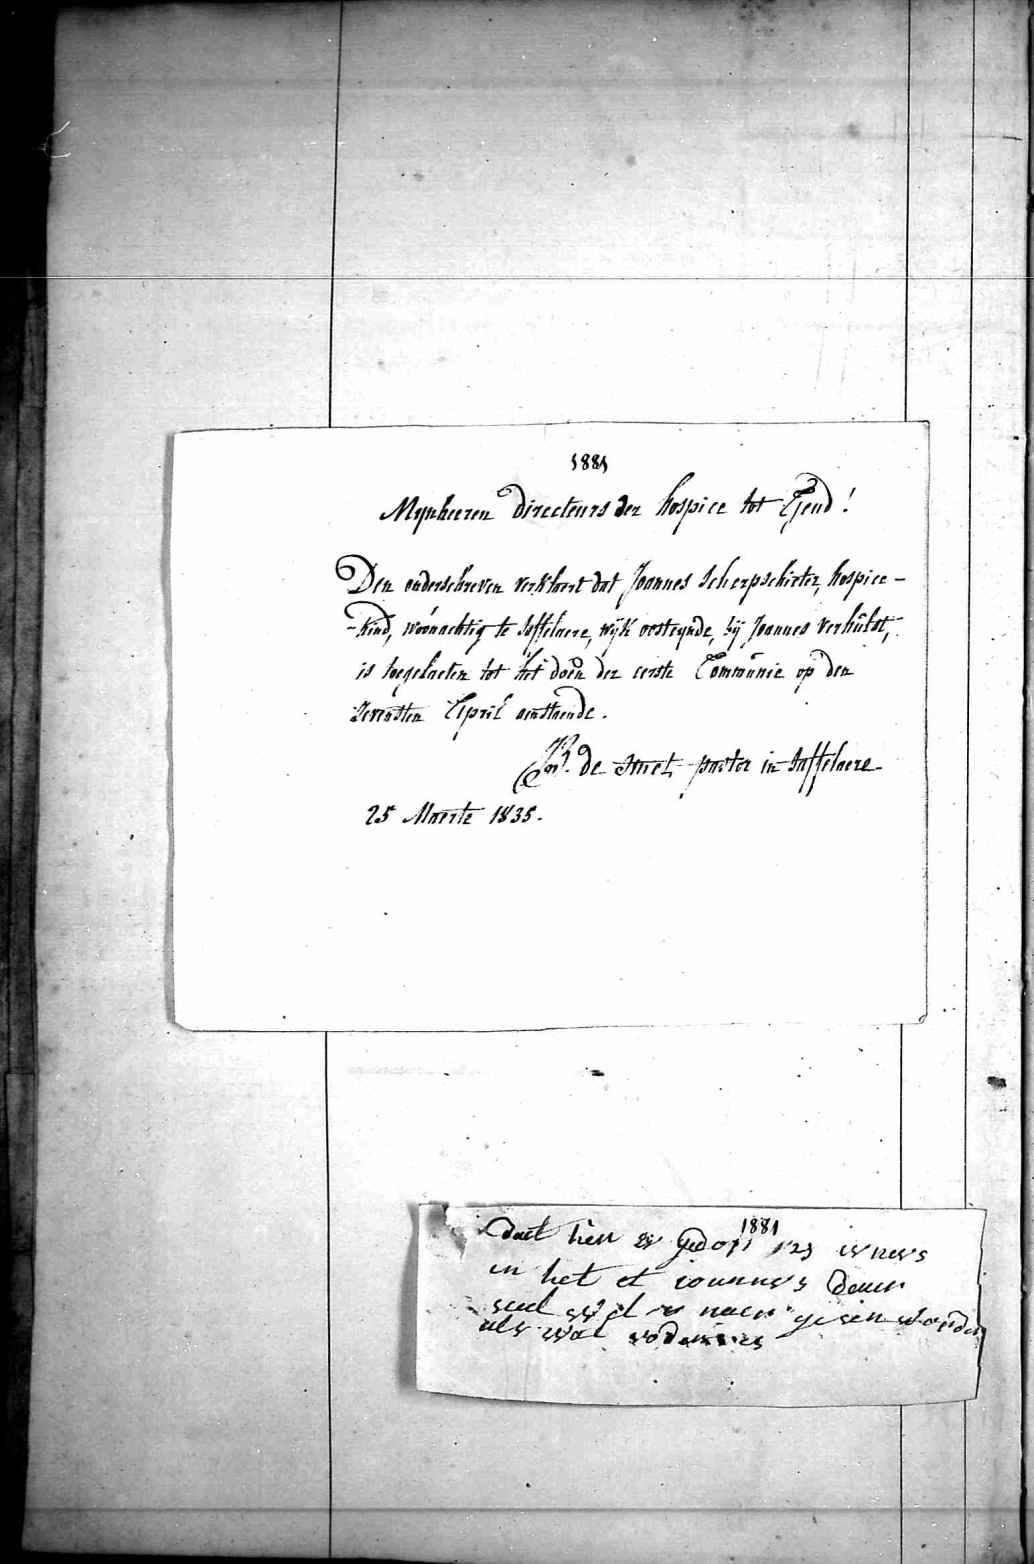 1881
Mynheeren directeurs der hospice tot Gend!
Den onderschreven verklaert dat Joannes Scherpschieter, hospice-
-kind, woónachtig te Saffelaere, wijk oosteynde, bij Joannes Verhŭlst,
is toegelaeten tot het doen der eerste Commŭnie op den
sevensten April aenstaende.
B. de Smet pastor in Saffelaere
25 Maerte 1835.
1881
Dact kien is gedopt
en het et iouannes
seul naer gesien worden
als